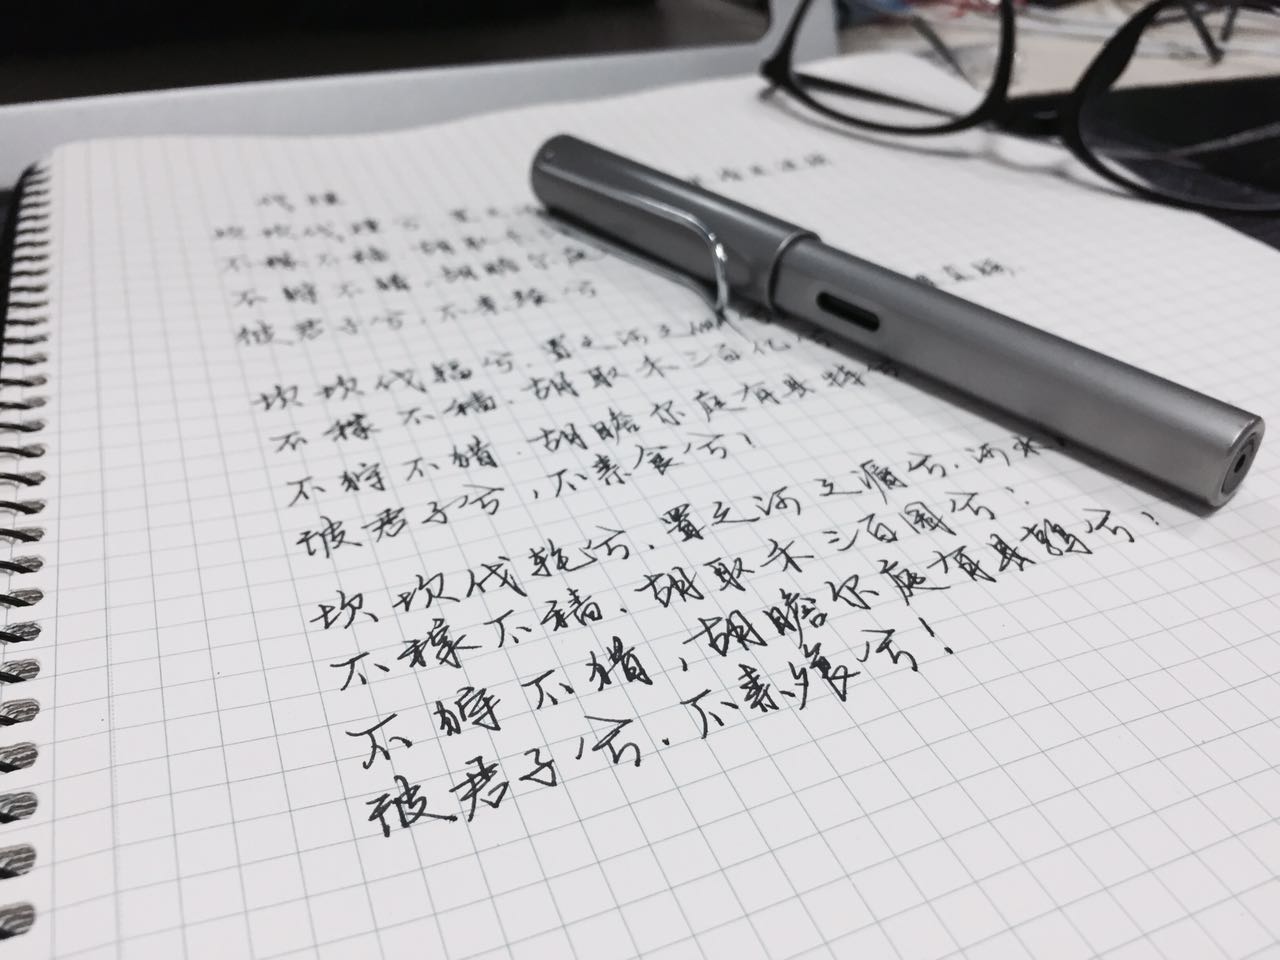 伐檀
坎坎伐檀兮 置之河
不稼不穑 胡取禾
不狩不猎,胡瞻尔庭
彼君子兮,不素餐兮
坎坎伐辐兮,置之河之侧
不稼不穑,胡取禾三百亿兮
不狩不猎,胡瞻尔庭有县特兮
彼君子兮,不素食兮!
坎坎伐轮兮,置之河之漘兮,河水
不稼不穑,胡取禾三百囷兮!
不狩不猎,胡瞻尔庭有县鹑兮!
彼君子兮,不素飧兮!